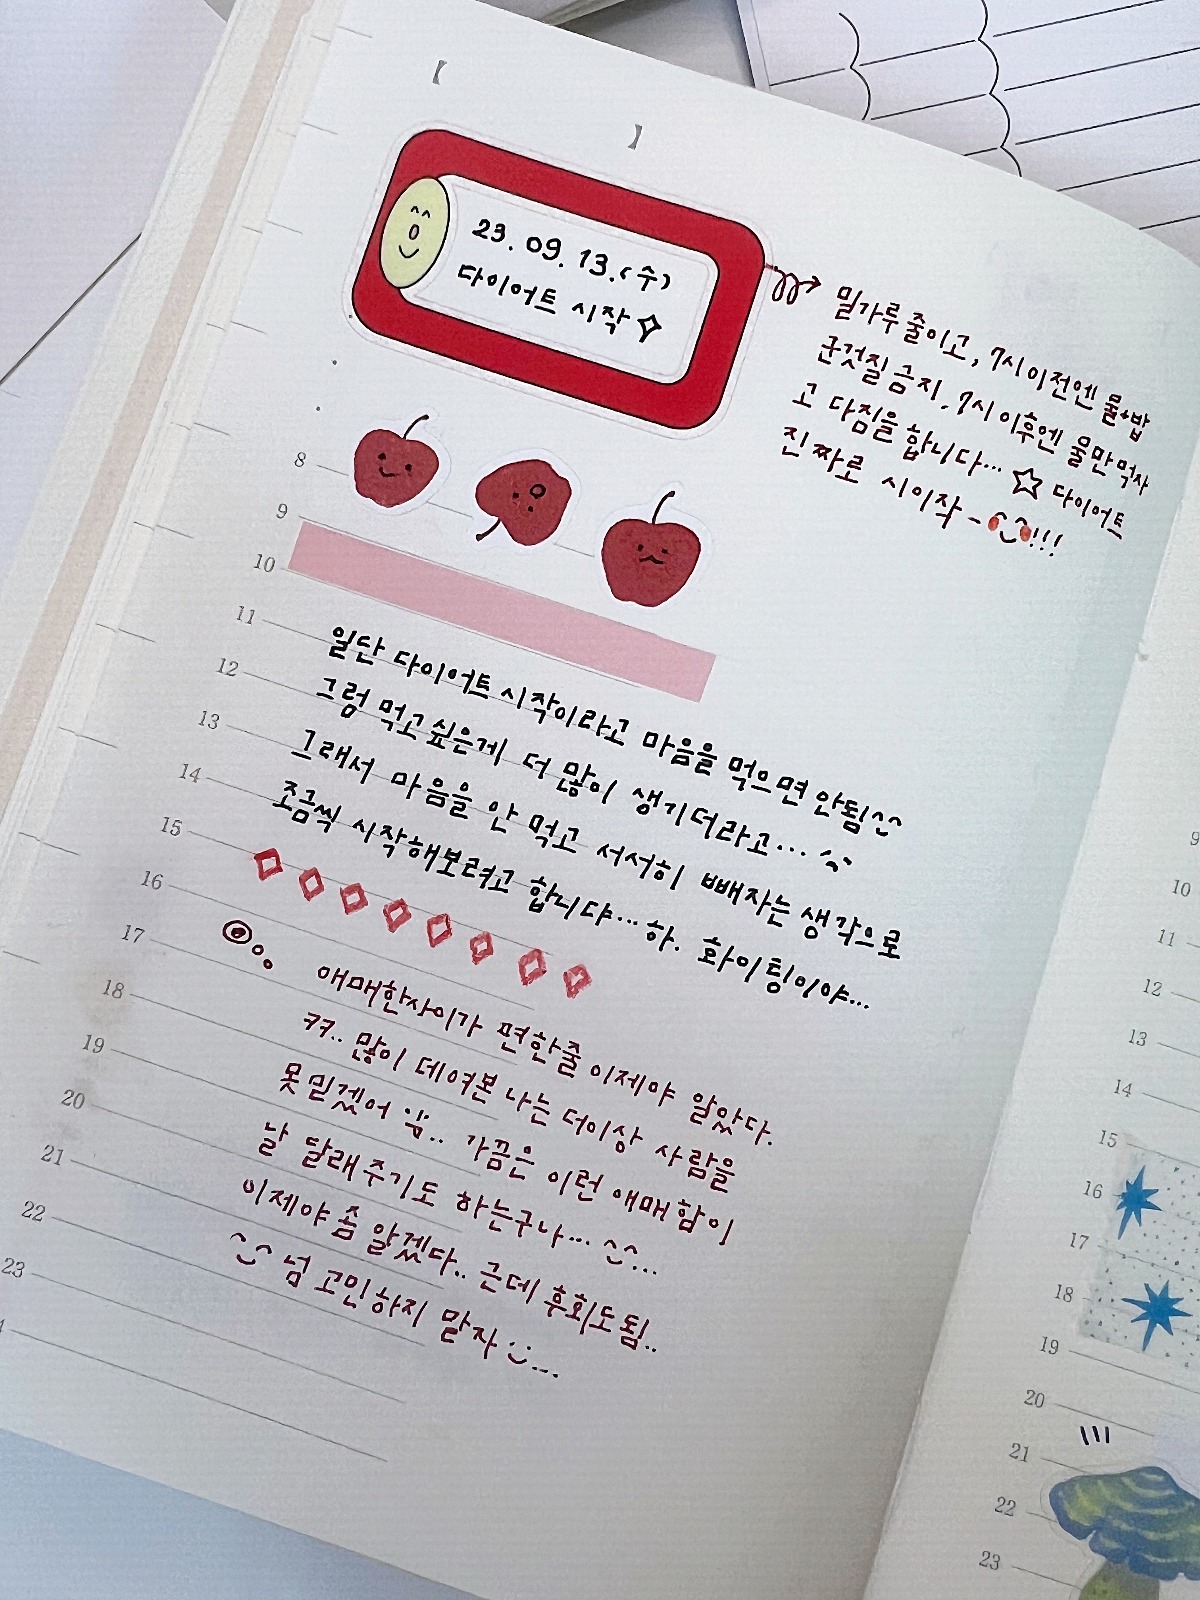 【 】
23. 09. 13. (수)
다이어트 시작
밀가루 줄이고, 7시 이전엔 물+밥
군것질 금지. 7시 이후엔 물만 먹자
고 다짐을 합니다... ☆ 다이어트
진짜로 시이작 - !!!
8
9
10
11
12
13
14
15
16
17
18
19
20
21
22
23
일단 다이어트 시작이라고 마음을 먹으면 안됨^^
그럼 먹고싶은게 더 많이 생기더라고...
그래서 마음을 안 먹고 서서히 빼자는 생각으로
조금씩 시작해보려고 합니댜... 하. 화이팅이야...
애매한사이가 편한줄 이제야 알았다.
켜.. 많이 데여본 나는 더이상 사람을
못믿겠어 .. 가끔은 이런 애매함이
날 달래주기도 하는구나... ^^...
이제야 좀 알겠다.. 근데 후회도됨..
넘 고민하지 말자 ...
9
10
11
12
13
14
15
16
17
18
19
20
21
22
23